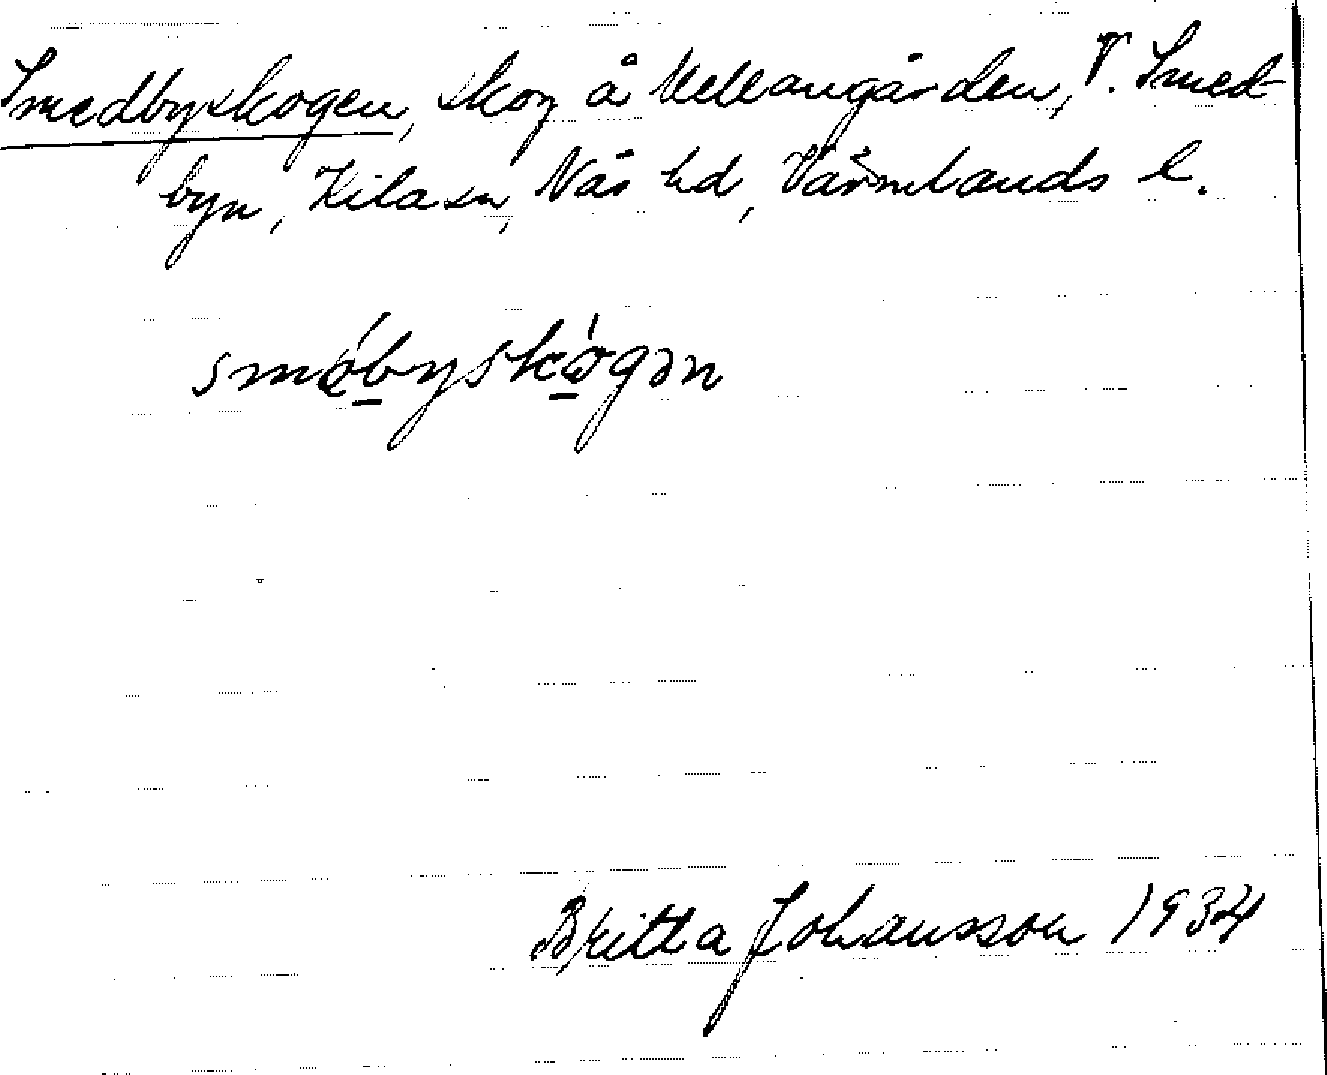 Smedbyskogen, skog å Mellangården, V. Smed-
byn, Kila sn, Näs hd, Värmlands l.
smø̀byskògən
Britta Johansson 1934